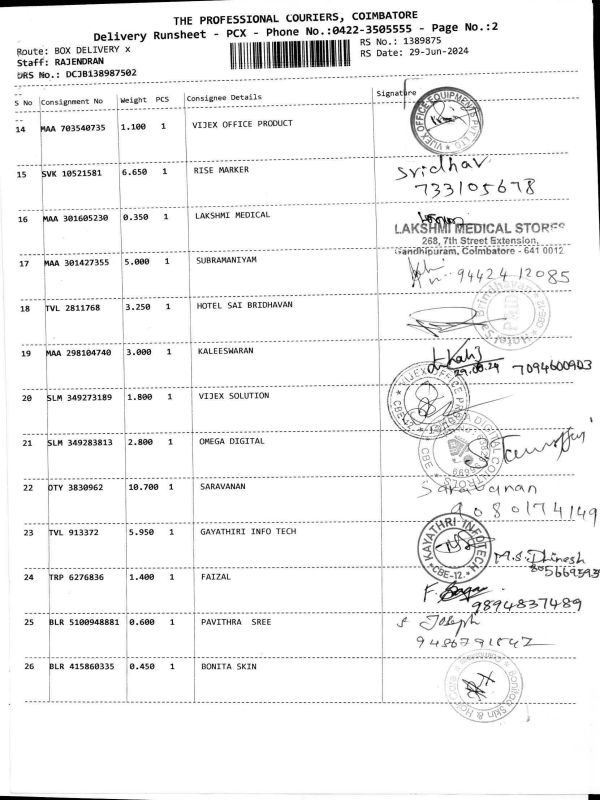 THE PROFESSIONAL COURIERS, COIMBATORE
Delivery Runsheet - PCX - Phone No.:0422-3505555 - Page No.:2
Route: BOX DELIVERY x
RS No.: 1389875
Staff: RAJENDRAN
RS Date: 29-Jun-2024
DRS No.: DCJB138987502
S No Consignment No Weight PCS Consignee Details Signature
14 MAA 703540735 1.100 1 VIJEX OFFICE PRODUCT
VIJEX OFFICE EQUIPMENTS PVT LTD
15 SVK 10521581 6.650 1 RISE MARKER
Sridhar
733105678
16 MAA 301605230 0.350 1 LAKSHMI MEDICAL
LAKSHMI MEDICAL STORES
268, 7th Street Extension,
Gandhipuram, Coimbatore - 641 0012
17 MAA 301427355 5.000 1 SUBRAMANIYAM
9442412085
18 TVL 2811768 3.250 1 HOTEL SAI BRIDHAVAN
19 MAA 298104740 3.000 1 KALEESWARAN
29.06.24 7094600903
20 SLM 349273189 1.800 1 VIJEX SOLUTION
21 SLM 349283813 2.800 1 OMEGA DIGITAL
22 OTY 3830962 10.700 1 SARAVANAN
Saravanan
9080174149
23 TVL 913372 5.950 1 GAYATHIRI INFO TECH
KAYATHRI INFOTECH
CBE-12.
M.S. Dhinesh
24 TRP 6276836 1.400 1 FAIZAL
9894837489
25 BLR 5100948881 0.600 1 PAVITHRA SREE
S Joseph
26 BLR 415860335 0.450 1 BONITA SKIN